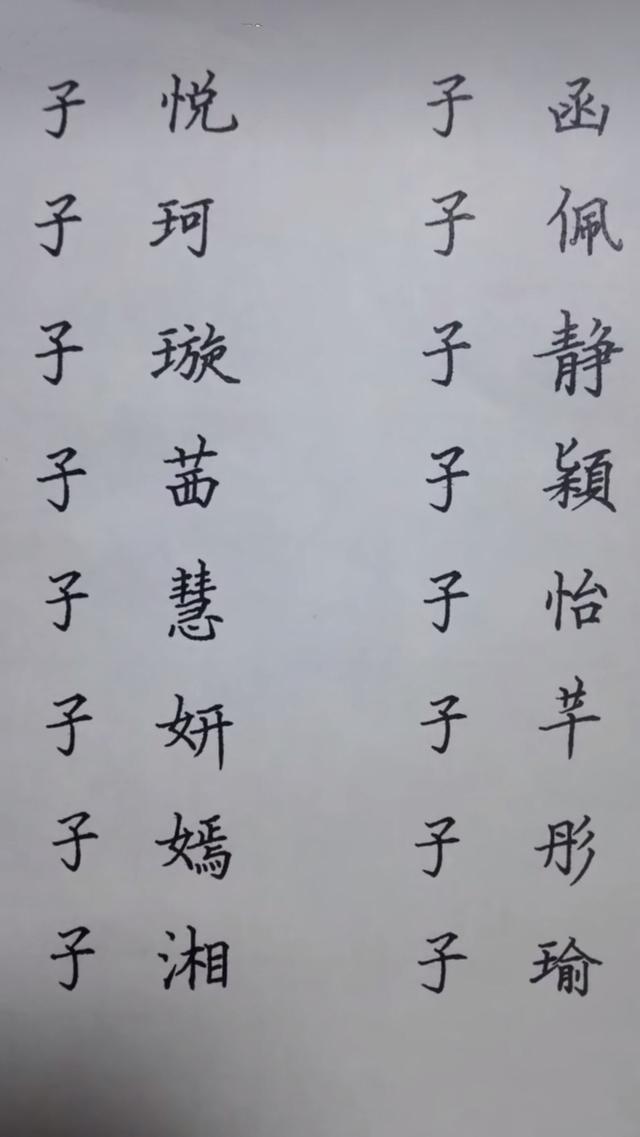 子悦 子函
子珂 子佩
子璇 子静
子茜 子颖
子慧 子怡
子妍 子芊
子嫣 子彤
子湘 子瑜